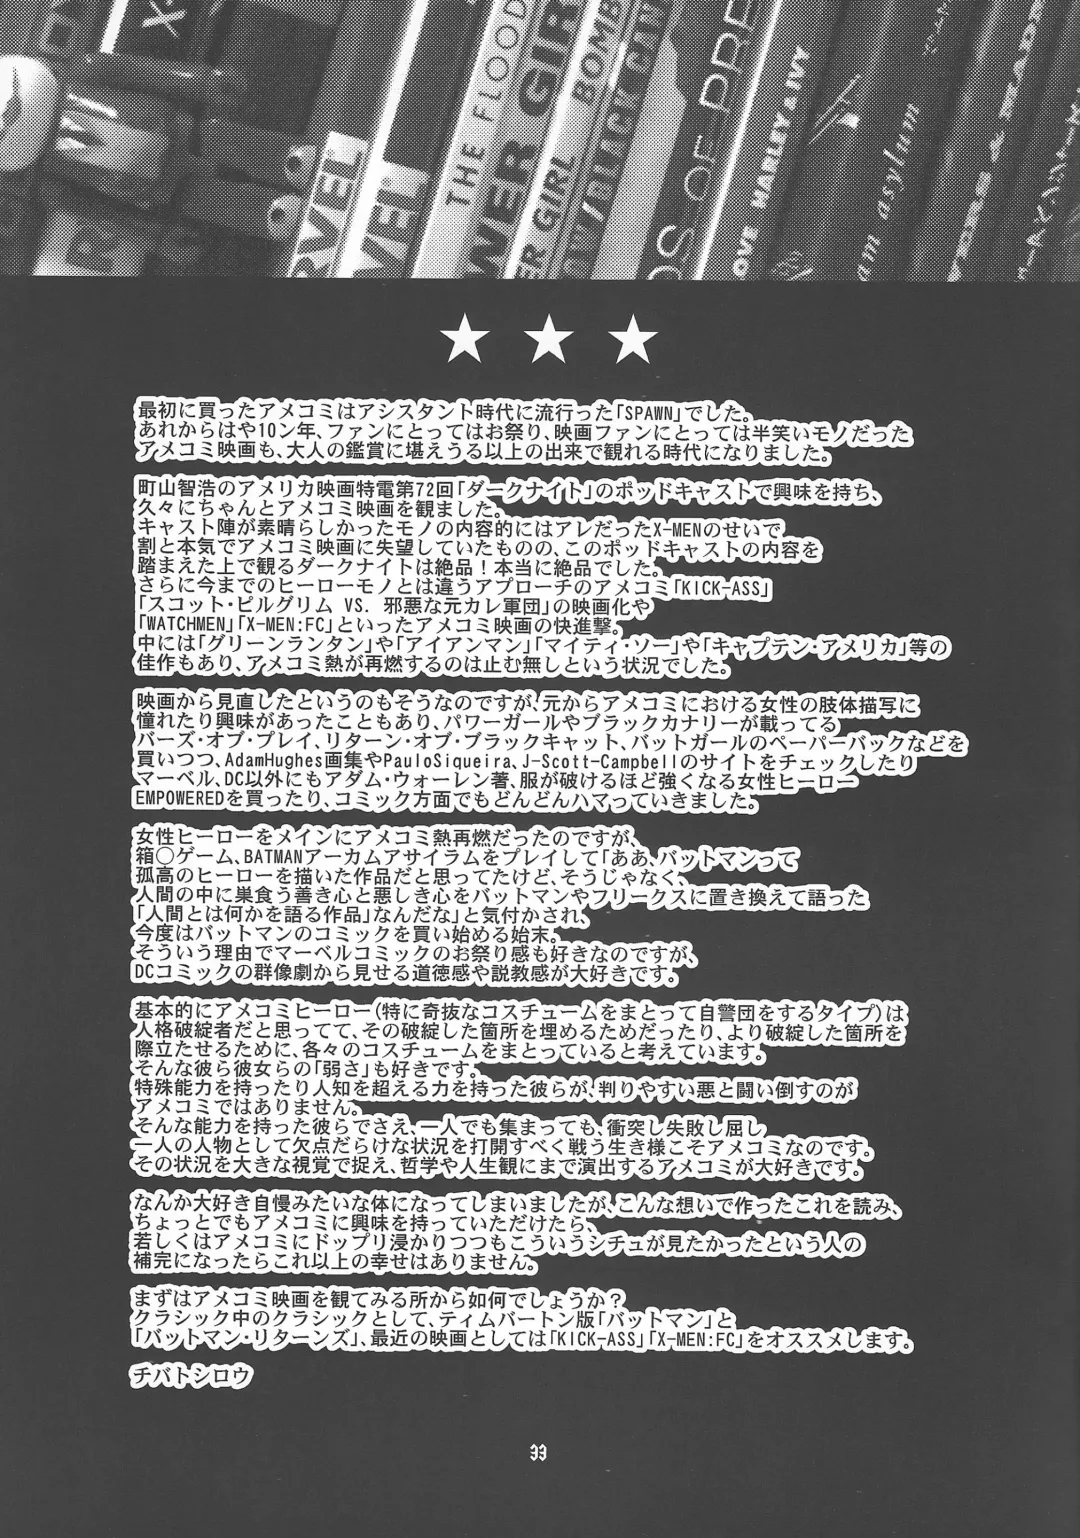 X-
THE FLOOD
WER GIRL
ER GIRL BOMB
AW/BLACK CANA
OS OF PRE
OVE HARLEY & IVY
am asylum
VERS & MAR
RVEL
VEL
R
★ ★ ★
最初に買ったアメコミはアシスタント時代に流行った「SPAWN」でした。
あれからはや10ン年、ファンにとってはお祭り、映画ファンにとっては半笑いモノだった
アメコミ映画も、大人の鑑賞に堪えうる以上の出来で観れる時代になりました。
町山智浩のアメリカ映画特電第72回「ダークナイト」のポッドキャストで興味を持ち、
久々にちゃんとアメコミ映画を観ました。
キャスト陣が素晴らしかったモノの内容的にはアレだったX-MENのせいで
割と本気でアメコミ映画に失望していたものの、このポッドキャストの内容を
踏まえた上で観るダークナイトは絶品！本当に絶品でした。
さらに今までのヒーローモノとは違うアプローチのアメコミ「KICK-ASS」
「スコット・ピルグリム VS. 邪悪な元カレ軍団」の映画化や
「WATCHMEN」「X-MEN:FC」といったアメコミ映画の快進撃。
中には「グリーンランタン」や「アイアンマン」「マイティ・ソー」や「キャプテン・アメリカ」等の
佳作もあり、アメコミ熱が再燃するのは止む無しという状況でした。
映画から見直したというのもそうなのですが、元からアメコミにおける女性の肢体描写に
憧れたり興味があったこともあり、パワーガールやブラックカナリーが載ってる
バーズ・オブ・プレイ、リターン・オブ・ブラックキャット、バットガールのペーパーバックなどを
買いつつ、AdamHughes画集やPauloSiqueira、J-Scott-Campbellのサイトをチェックしたり
マーベル、DC以外にもアダム・ウォーレン著、服が破けるほど強くなる女性ヒーロー
EMPOWEREDを買ったり、コミック方面でもどんどんハマっていきました。
女性ヒーローをメインにアメコミ熱再燃だったのですが、
箱〇ゲーム、BATMANアーカムアサイラムをプレイして「ああ、バットマンって
孤高のヒーローを描いた作品だと思ってたけど、そうじゃなく、
人間の中に巣食う善き心と悪しき心をバットマンやフリークスに置き換えて語った
「人間とは何かを語る作品」なんだな」と気付かされ、
今度はバットマンのコミックを買い始める始末。
そういう理由でマーベルコミックのお祭り感も好きなのですが、
DCコミックの群像劇から見せる道徳感や説教感が大好きです。
基本的にアメコミヒーロー(特に奇抜なコスチュームをまとって自警団をするタイプ)は
人格破綻者だと思ってて、その破綻した箇所を埋めるためだったり、より破綻した箇所を
際立たせるために、各々のコスチュームをまとっていると考えています。
そんな彼ら彼女らの「弱さ」も好きです。
特殊能力を持ったり人知を超える力を持った彼らが、判りやすい悪と闘い倒すのが
アメコミではありません。
そんな能力を持った彼らでさえ、一人でも集まっても、衝突し失敗し屈し
一人の人物として欠点だらけな状況を打開すべく戦う生き様こそアメコミなのです。
その状況を大きな視覚で捉え、哲学や人生観にまで演出するアメコミが大好きです。
なんか大好き自慢みたいな体になってしまいましたが、こんな想いで作ったこれを読み、
ちょっとでもアメコミに興味を持っていただけたら、
若しくはアメコミにドップリ浸かりつつもこういうシチュが見たかったという人の
補完になったらこれ以上の幸せはありません。
まずはアメコミ映画を観てみる所から如何でしょうか？
クラシック中のクラシックとして、ティムバートン版「バットマン」と
「バットマン・リターンズ」、最近の映画としては「KICK-ASS」「X-MEN:FC」をオススメします。
チバトシロウ
33